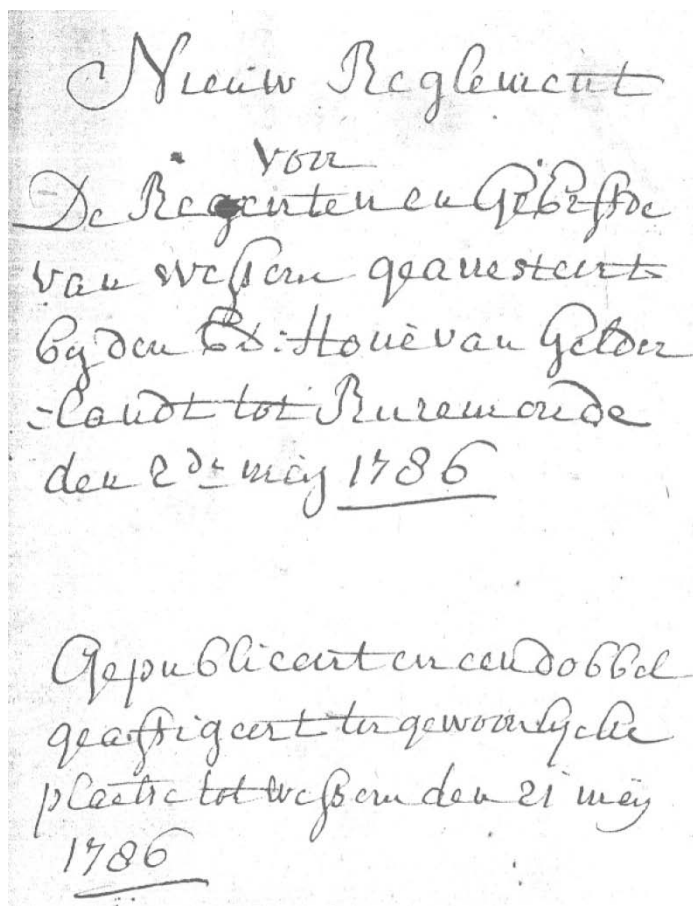 Nieuw Reglement
voor
De Regenten en Gebrffde
van Wessem gearresteert
by den Ed: Hove van Gelder
-landt tot Ruremonde
den 2de meÿ 1786
Gepubliceert en een dobbel
geaffigeert ter gewoonlycke
plaetse tot Wessem den 21 meÿ
1786